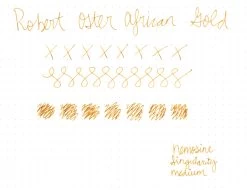 Robert Oster African Gold
x x x x x x x x
Nemosine
Singularity
medium